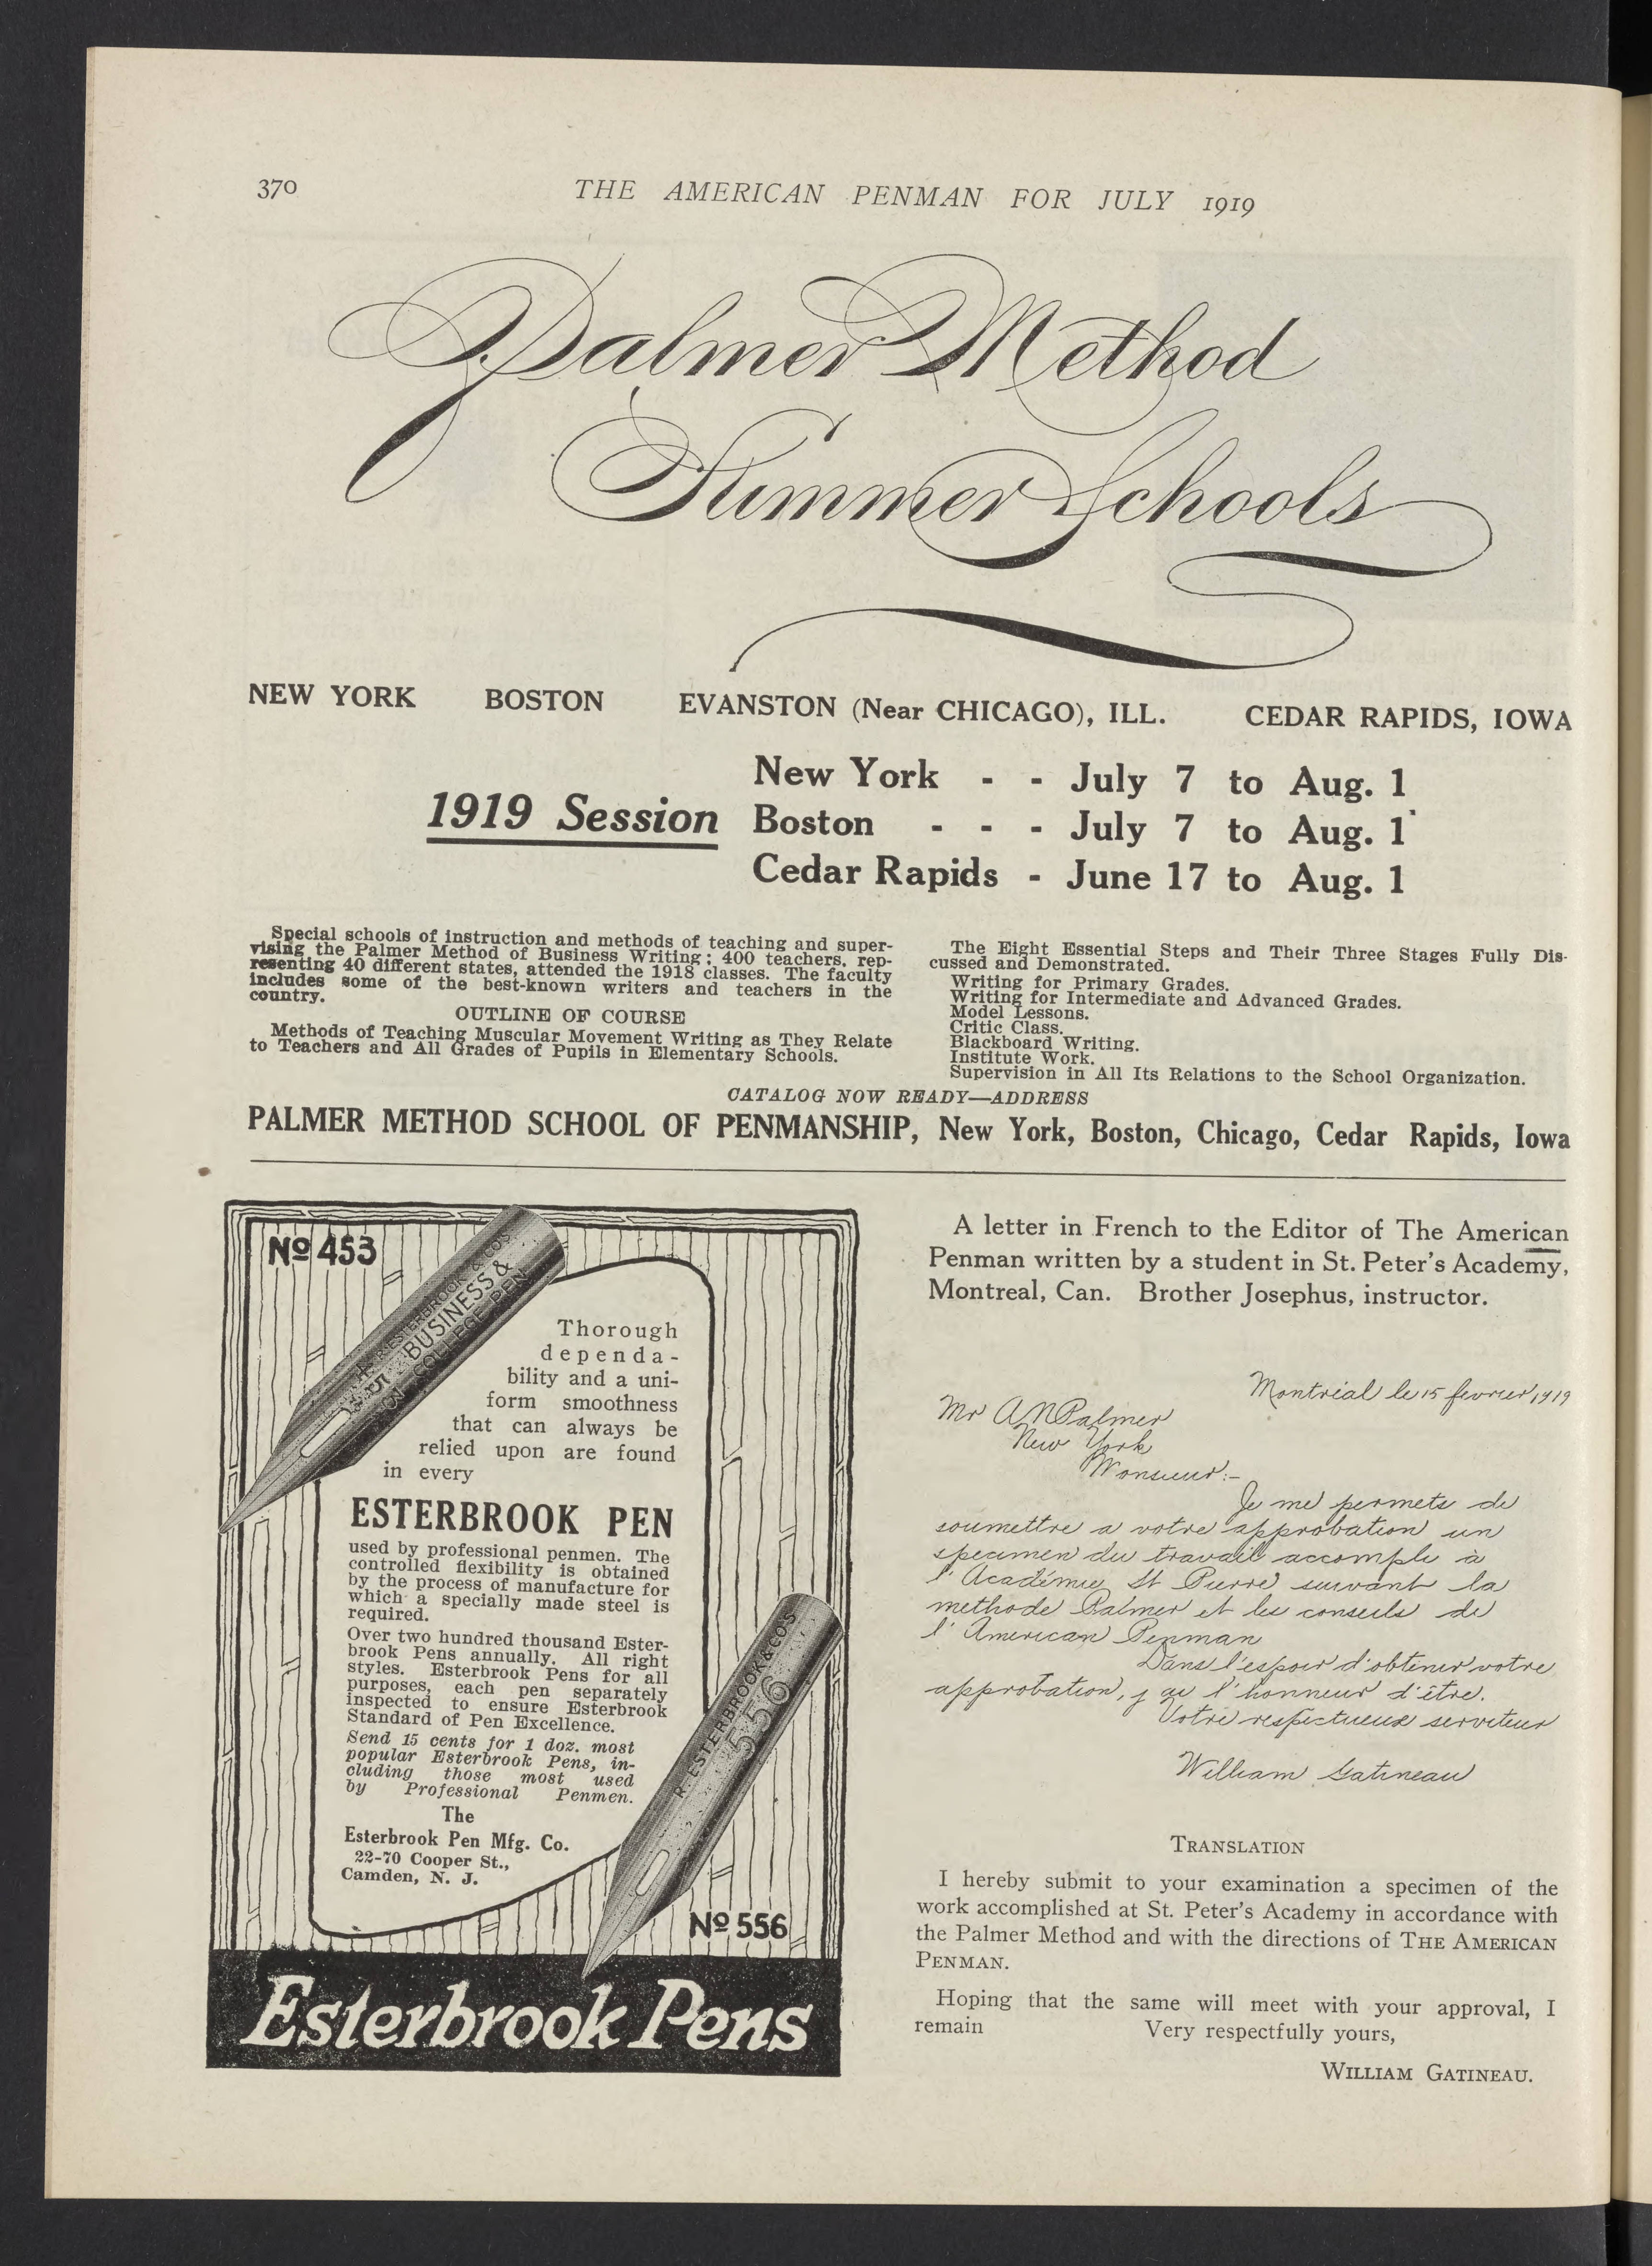 370
THE AMERICAN PENMAN FOR JULY 1919
Palmer Method
Summer Schools
NEW YORK BOSTON EVANSTON (Near CHICAGO), ILL. CEDAR RAPIDS, IOWA
1919 Session
New York - - July 7 to Aug. 1
Boston - - - July 7 to Aug. 1
Cedar Rapids - June 17 to Aug. 1
Special schools of instruction and methods of teaching and super-
vising the Palmer Method of Business Writing; 400 teachers, rep-
resenting 40 different states, attended the 1918 classes. The faculty
includes some of the best-known writers and teachers in the
country.
OUTLINE OF COURSE
Methods of Teaching Muscular Movement Writing as They Relate
to Teachers and All Grades of Pupils in Elementary Schools.
The Eight Essential Steps and Their Three Stages Fully Dis-
cussed and Demonstrated.
Writing for Primary Grades.
Writing for Intermediate and Advanced Grades.
Model Lessons.
Critic Class.
Blackboard Writing.
Institute Work.
Supervision in All Its Relations to the School Organization.
CATALOG NOW READY—ADDRESS
PALMER METHOD SCHOOL OF PENMANSHIP, New York, Boston, Chicago, Cedar Rapids, Iowa
No 453
R. ESTERBROOK & CO'S
BUSINESS &
COLLEGE PEN
Thorough
dependa-
bility and a uni-
form smoothness
that can always be
relied upon are found
in every
ESTERBROOK PEN
used by professional penmen. The
controlled flexibility is obtained
by the process of manufacture for
which a specially made steel is
required.
Over two hundred thousand Ester-
brook Pens annually. All right
styles. Esterbrook Pens for all
purposes, each pen separately
inspected to ensure Esterbrook
Standard of Pen Excellence.
Send 15 cents for 1 doz. most
popular Esterbrook Pens, in-
cluding those most used
by Professional Penmen.
The
Esterbrook Pen Mfg. Co.
22-70 Cooper St.,
Camden, N. J.
R. ESTERBROOK & CO'S
556
No 556
Esterbrook Pens
A letter in French to the Editor of The American
Penman written by a student in St. Peter's Academy,
Montreal, Can. Brother Josephus, instructor.
Montréal le 15 fevrier 1919
Mr A N Palmer
New York
Monsieur:-
Je me permets de
soumettre a votre approbation un
specimen du travail accompli à
l'Académie St Pierre suivant la
methode Palmer et les conseils de
l'American Penman
Dans l'espoir d'obtenir votre
approbation, j ai l'honneur d'être.
Votre respectueux serviteur
William Gatineau
TRANSLATION
I hereby submit to your examination a specimen of the
work accomplished at St. Peter's Academy in accordance with
the Palmer Method and with the directions of THE AMERICAN
PENMAN.
Hoping that the same will meet with your approval, I
remain Very respectfully yours,
WILLIAM GATINEAU.